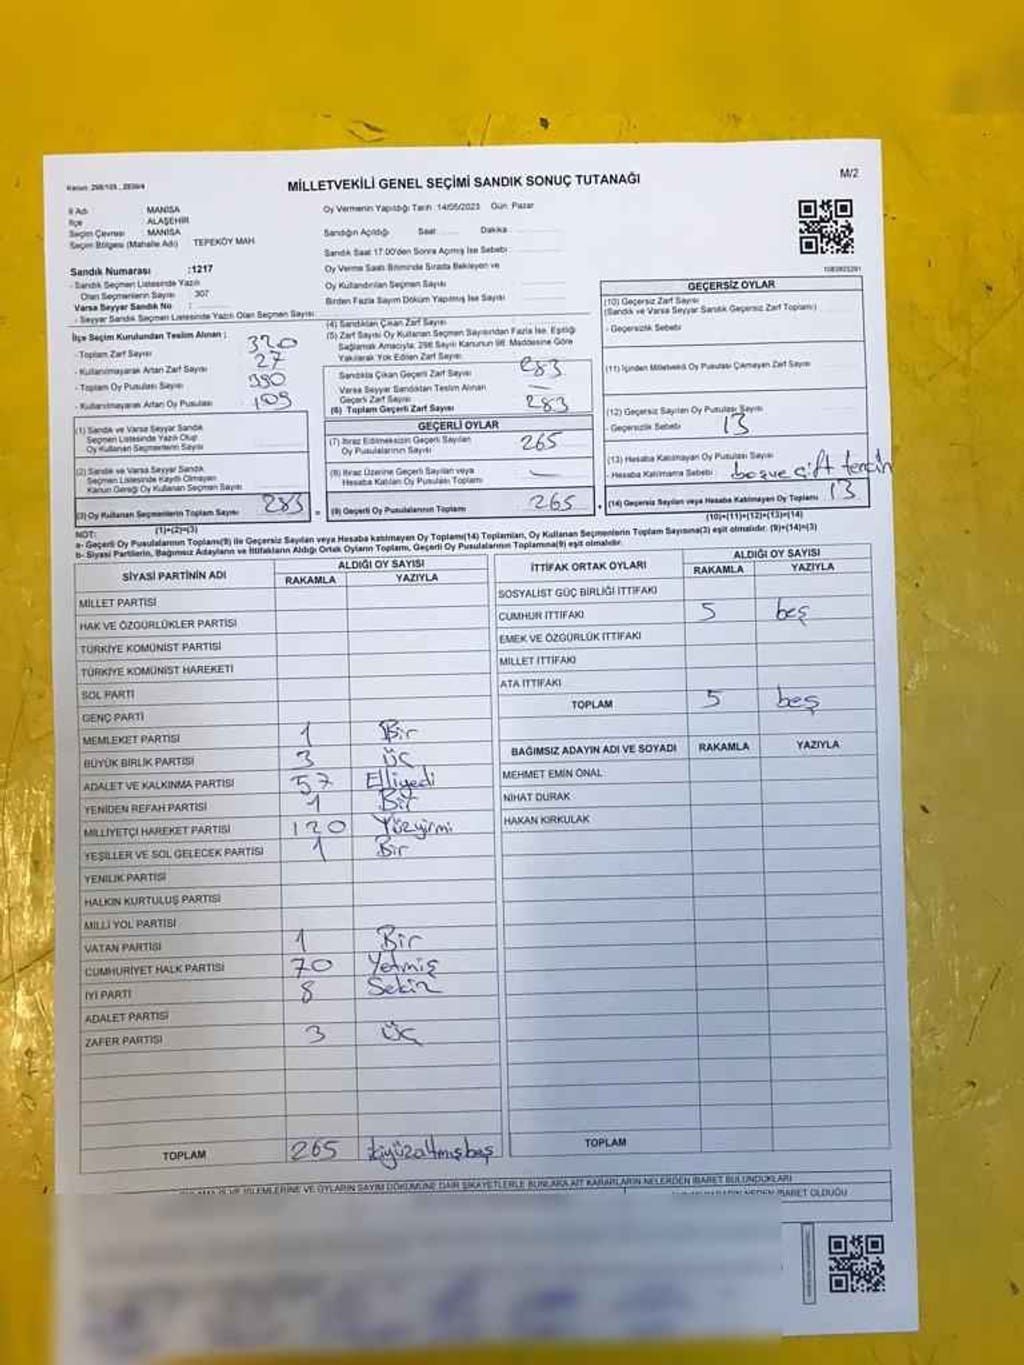 Kanun: 298/105 , 2839/4
M/2
MİLLETVEKİLİ GENEL SEÇİMİ SANDIK SONUÇ TUTANAĞI
İl Adı : MANİSA
İlçe : ALAŞEHİR
Seçim Çevresi : MANİSA
Seçim Bölgesi (Mahalle Adı) : TEPEKÖY MAH.
Oy Vermenin Yapıldığı Tarih :14/05/2023 Gün: Pazar
Sandığın Açıldığı Saat Dakika
Sandık Saat 17.00'den Sonra Açılmış İse Sebebi
Oy Verme Saati Bitiminde Sırada Bekleyen ve
Oy Kullandırılan Seçmen Sayısı
Birden Fazla Sayım Döküm Yapılmış İse Sayısı
Sandık Numarası :1217
- Sandık Seçmen Listesinde Yazılı
Olan Seçmenlerin Sayısı : 307
Varsa Seyyar Sandık No :
- Seyyar Sandık Seçmen Listesinde Yazılı Olan Seçmen Sayısı
İlçe Seçim Kurulundan Teslim Alınan ;
- Toplam Zarf Sayısı 320
- Kullanılmayarak Artan Zarf Sayısı 27
- Toplam Oy Pusulası Sayısı
- Kullanılmayarak Artan Oy Pusulası
(1) Sandık ve Varsa Seyyar Sandık
Seçmen Listesinde Yazılı Olup
Oy Kullanan Seçmenlerin Sayısı
(2) Sandık ve Varsa Seyyar Sandık
Seçmen Listesinde Kayıtlı Olmayan
Kanun Gereği Oy Kullanan Seçmen Sayısı
(3) Oy Kullanan Seçmenlerin Toplam Sayısı 283
(1)+(2)=(3)
(4) Sandıktan Çıkan Zarf Sayısı
(5) Zarf Sayısı Oy Kullanan Seçmen Sayısından Fazla İse, Eşitliği
Sağlamak Amacıyla, 298 Sayılı Kanunun 98. Maddesine Göre
Yakılarak Yok Edilen Zarf Sayısı
Sandıkta Çıkan Geçerli Zarf Sayısı 283
Varsa Seyyar Sandıktan Teslim Alınan
Geçerli Zarf Sayısı —
(6) Toplam Geçerli Zarf Sayısı 283
GEÇERLİ OYLAR
(7) İtiraz Edilmeksizin Geçerli Sayılan
Oy Pusulalarının Sayısı 265
(8) İtiraz Üzerine Geçerli Sayılan veya
Hesaba Katılan Oy Pusulası Toplamı —
= (9) Geçerli Oy Pusulalarının Toplamı 265
GEÇERSİZ OYLAR
(10) Geçersiz Zarf Sayısı
(Sandık ve Varsa Seyyar Sandık Geçersiz Zarf Toplamı)
- Geçersizlik Sebebi
(11) İçinden Milletvekili Oy Pusulası Çıkmayan Zarf Sayısı
(12) Geçersiz Sayılan Oy Pusulası Sayısı
- Geçersizlik Sebebi 13
(13) Hesaba Katılmayan Oy Pusulası Sayısı
- Hesaba Katılmama Sebebi : boş ve çift tercih
+ (14) Geçersiz Sayılan veya Hesaba Katılmayan Oy Toplamı 13
(10)+(11)+(12)+(13)=(14)
NOT:
a- Geçerli Oy Pusulalarının Toplamı(9) ile Geçersiz Sayılan veya Hesaba katılmayan Oy Toplamı(14) Toplamları, Oy Kullanan Seçmenlerin Toplam Sayısına(3) eşit olmalıdır. (9)+(14)=(3)
b- Siyasi Partilerin, Bağımsız Adayların ve İttifakların Aldığı Ortak Oyların Toplamı, Geçerli Oy Pusulalarının Toplamına(9) eşit olmalıdır.
SİYASİ PARTİNİN ADI ALDIĞI OY SAYISI
RAKAMLA YAZIYLA
MİLLET PARTİSİ
HAK VE ÖZGÜRLÜKLER PARTİSİ
TÜRKİYE KOMÜNİST PARTİSİ
TÜRKİYE KOMÜNİST HAREKETİ
SOL PARTİ
GENÇ PARTİ
MEMLEKET PARTİSİ 1 Bir
BÜYÜK BİRLİK PARTİSİ 3 Üç
ADALET VE KALKINMA PARTİSİ 57 Elliyedi
YENİDEN REFAH PARTİSİ 1 Bir
MİLLİYETÇİ HAREKET PARTİSİ 120 Yüzyirmi
YEŞİLLER VE SOL GELECEK PARTİSİ 1 Bir
YENİLİK PARTİSİ
HALKIN KURTULUŞ PARTİSİ
MİLLİ YOL PARTİSİ
VATAN PARTİSİ 1 Bir
CUMHURİYET HALK PARTİSİ 70 Yetmiş
İYİ PARTİ 8 Sekiz
ADALET PARTİSİ
ZAFER PARTİSİ 3 Üç
TOPLAM 265 İkiyüzaltmışbeş
İTTİFAK ORTAK OYLARI ALDIĞI OY SAYISI
RAKAMLA YAZIYLA
SOSYALİST GÜÇ BİRLİĞİ İTTİFAKI
CUMHUR İTTİFAKI 5 beş
EMEK VE ÖZGÜRLÜK İTTİFAKI
MİLLET İTTİFAKI
ATA İTTİFAKI
TOPLAM 5 beş
BAĞIMSIZ ADAYIN ADI VE SOYADI RAKAMLA YAZIYLA
MEHMET EMİN ÖNAL
NİHAT DURAK
HAKAN KIRKULAK
TOPLAM
VE İŞLEMLERİNE VE OYLARIN SAYIM DÖKÜMÜNE DAİR ŞİKAYETLERLE BUNLARA AİT KARARLARIN NELERDEN İBARET BULUNDUKLARI
NEDEN İBARET OLDUĞU